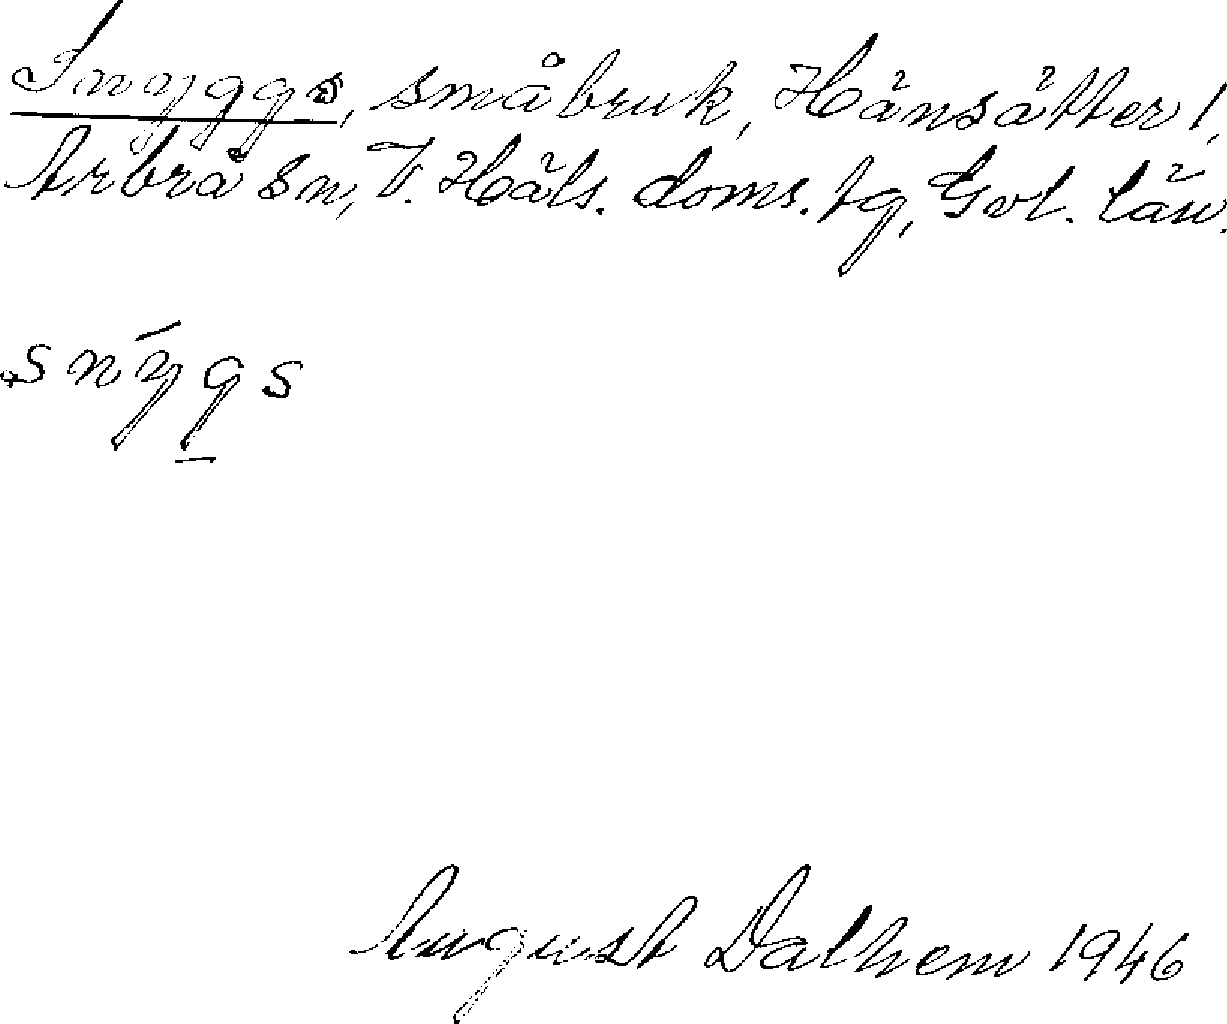 Snyggs, småbruk, Hänsätter 1,
Arbrå sn, V. Häls. doms. tg, Gvl. län.
snýgs
August Dalhem 1946